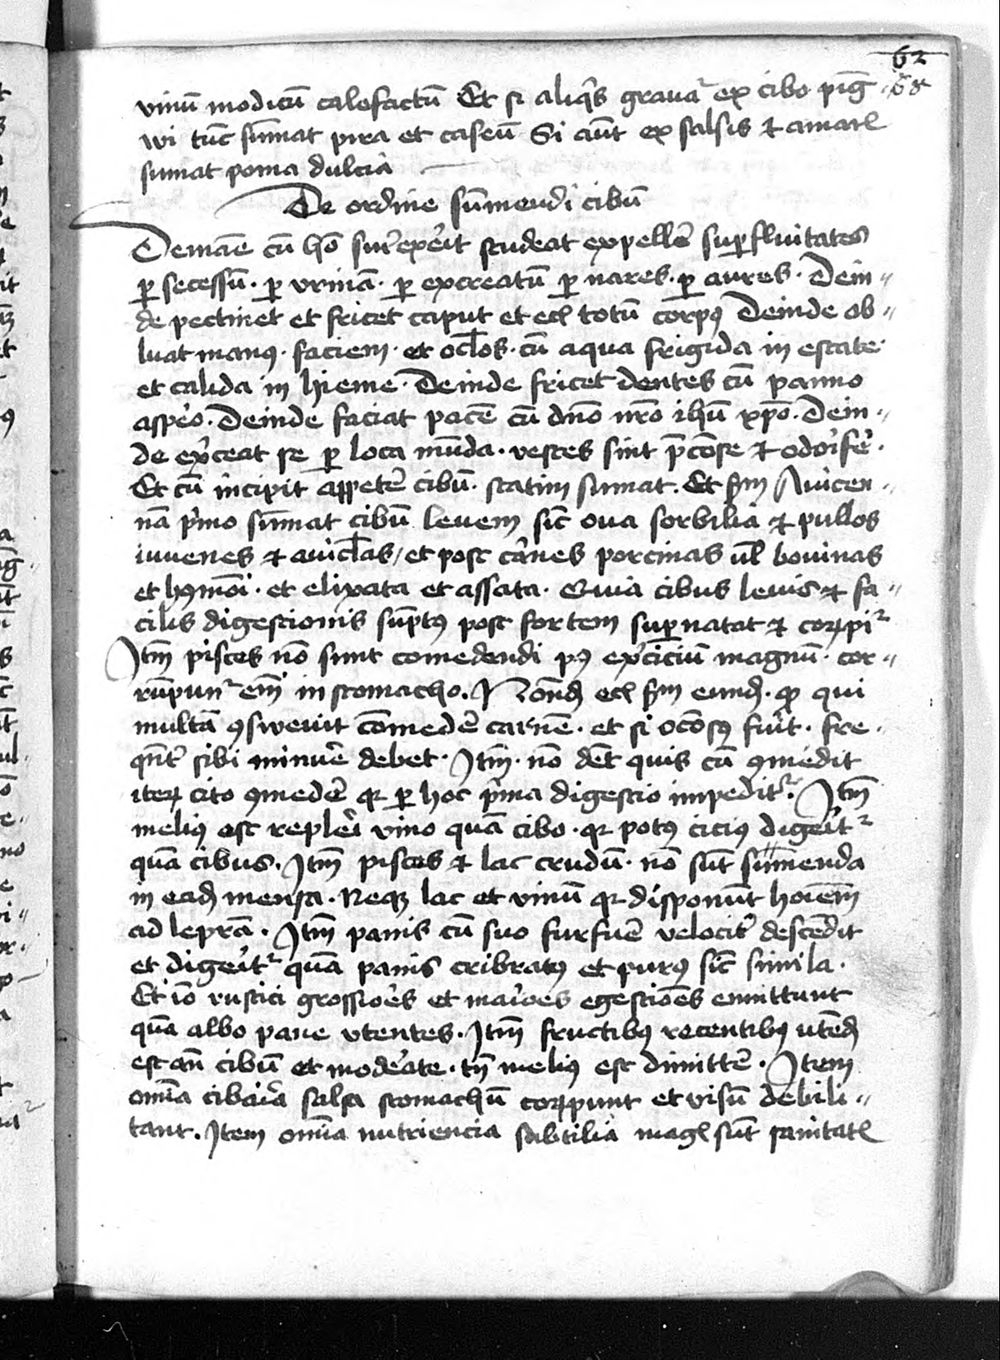 62
68
vinū modicū calefactū Et si aliq̇s grauat᷑ ex cibo pīg
wi tūc sūmat pira et caseū Si aūt ex salsis ⁊ amar̄
sumat poma dulcia
De ordine sūmendi cibū
De mane cū hō surrex̄it studeat expellē sup̄fluitates
ꝑ secessū · ꝑ vrinā · ꝑ excreatū ꝑ nares · ꝑ aures · Dein⸗
de pectinet et fricet caput et ecī totū corpꝯ Deinde ob⸗
luat manꝯ · faciem · et oclōs · cū aqua frigida in estate
et calida in hieme · Deinde fricet dentes cū panno
asp̄o · Deinde faciat pacē cū dn̄o nr̄o ihū xp̄o · Dein⸗
de ex̄ceat se ꝑ loca mūda · vestes sint p̄cōse ⁊ odorifē ·
Et cū incipit appetē cibū · statim sumat · Et sm̄ Auicen⸗
nā p̄mo sūmat cibū leuem sic̄ oua sorbilia ⁊ pullos
iuuenes ⁊ auiclās / et post carnes porcinas vl̄ bouinas
et hꝯmōi · et elixata et assata · Quia cibus leuis ⁊ fa⸗
cilis digestionis sūptꝯ post fortem sup̄natat ⁊ corrūpit᷑
Itm̄ pisces nō sunt comedendi pꝯ ex̄ciciū magnū · cor⸗
rūpun᷑ em̄ in stomacho · Nonđ ecī sm̄ eunđ · ꝙ qui
multā ꝯsweuit comedē carnē · et si ocōsꝯ fuit · fre⸗
qn̄t sibi minuē debet · Itm̄ · nō det quis cū ꝯmedit
iteꝝ cito ꝯmedē qꝛ ꝑ hoc p̄ma digestio impedit᷑ · Itm̄
meliꝯ est replēi vino quā cibo · qꝛ potꝯ ciciꝯ digeīt᷑
quā cibus · Itm̄ pisces ⁊ lac crudū · nō sūt sūmenda
in eađ mensa · Neqꝫ lac et vinū qꝛ disponūt hoīem
ad leprā · Itm̄ panis cū suo furfuē velocit̄ descēdit
et digeīt᷑ quā panis cribratꝯ et purꝯ sic̄ simila ·
Et iō rustici grossiōes et maiōes egestiōes emittunt
quā albo pane vtentes · Itm̄ fructibꝯ recentibꝯ vtenđ
est an̄ cibū et modēate · tn̄ meliꝯ est dimittē · Item
omīa cibaria salsa stomachū corrūpunt et visū debili⸗
tant · Item omīa nutriencia subtilia maḡ sūt sanitat̄